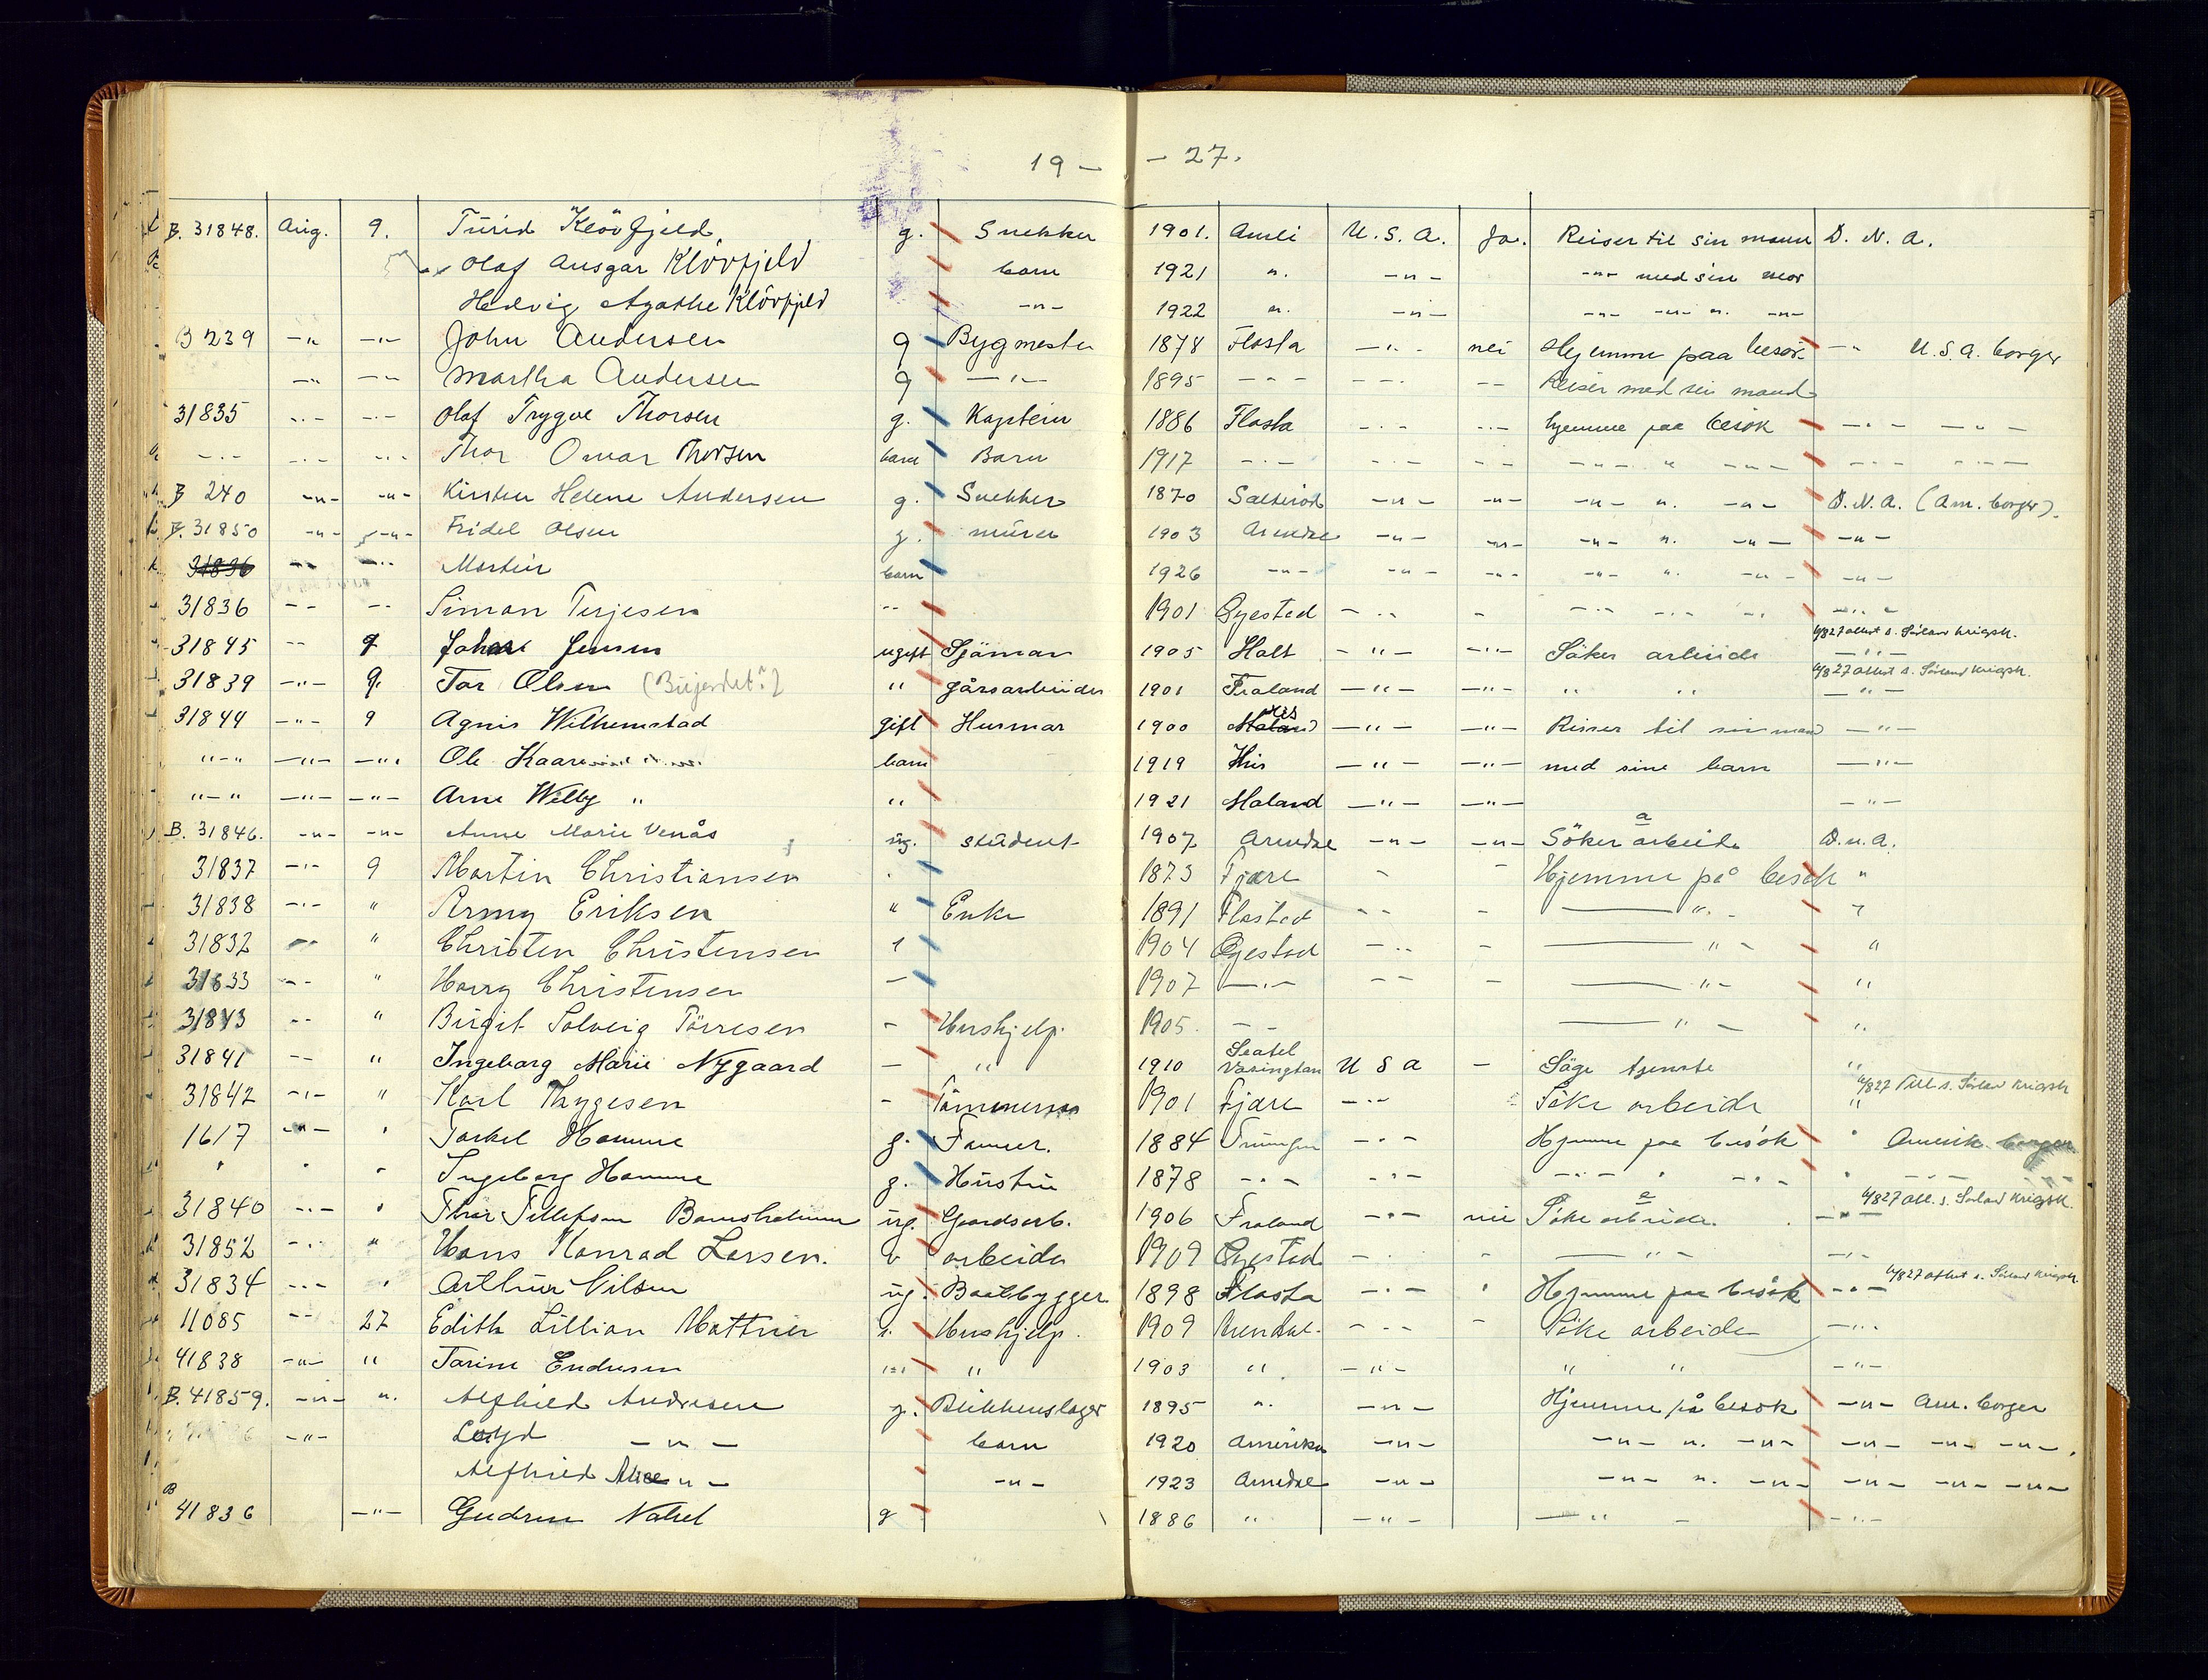 19 — — 27.
B. 31848. Aug. 9. Turid Klövfjeld g. Snekker 1901. Amli U.S.A. Ja. Reiser til sin mann D.N.A.
Olaf Ansgar Klövfjeld barn 1921 ". —"— —"— med sin mor
Hedvig Agathe Klövfjeld —"— 1922 ". —"— —"— —"— ". —"—
B 239 —" —"— John Andersen g Bygmester 1878 Flosta —"— nei Hjemme paa besøk —" U.S.A. borger
—" —"— Martha Andersen g —"— 1895 —"— —"— —"— Reiser med sin mand
31835 —"— —"— Olaf Trygve Thorsen g. Kaptein 1886 Flosta —"— —"— hjemme paa besøk —"— —"—
—"— —"— —"— Thor Omar Thorsen barn Barn 1917 —"— —"— —"— —"— " —"— —"— —"—
B 240 —"— —"— Kirsten Helene Andersen g. Snekker 1870 Salterød —"— —"— —"— ". —"— D.N.A. (Am. borger).
B. 31850 —"— —"— Fridel Olsen g. murer 1903 Arendal —"— —"— —"— ". —"— —"—
31836 —"— —"— Martin barn 1926 —"— —"— —"— —"— ". —"— —"—
31836 —"— —"— Simon Terjesen —"— 1901 Øyestad —"— — —"— —"— —"— —"—
31845 —"— 9 Johan Jensen ugift Sjöman 1905 Holt —"— —"— Söker arbeide —"— 4/8 27 attest s. Sörland Krigsk.
31839 —"— 9. Tor Olsen " gårsarbeider 1901 Froland —"— —"— " " —"— 4/8 27 attest s. Sörland Krigsk.
31844 —"— 9 Agnis Wilhemstad gift Husmor 1900 His —"— —"— Reiser til sin man —"—
"—" —"— —"— Ole Kaare barn 1919 His —"— —"— med sine barn —"—
"—" —"— —"— Arne Willy " " 1921 Moland —"— —"— —"—
B. 31846. —"— —"— Anne Marie Venås ug. student 1907 Arendal —"— —"— Söker arbeide D.n.A.
31837 —"— 9 Martin Christiansen 1873 Fjære — — Hjemme på besøk "
31838 —"— " Ermy Eriksen " Enke 1891 Flosted —"— — —"—
31832 —"— " Christen Christensen 1904 Øyestad —"— — —"— "
31833 —"— " Harry Christensen — 1907 —"— —"— — —"— "
31843 —"— " Birgit Solveig Törresen — Hushjelp. 1905. —"— —"— "
31841 —"— " Ingeborg Marie Nygaard — " 1910 Seatel Vasington U S A — Söge tjeneste "
31842 —"— " Karl Thygesen — Tömmerm 1901 Fjære —"— Söke arbeide " 4/8 27 att. s. Sörland Krigsk
1617 —"— " Torkel Homme g. Farmer. 1884 —"— Hjemme paa besök " Amerik borger
" " " Ingeborg Homme g. Hustru 1878 —"— —"— —"— " —"— " —"—
31840 —"— " Thor Tellefsen ug. Gaardsarb. 1906 Froland —"— nei Söke arbeide. —"— 4/8 27 att. s. Sörland Krigsk.
31852 —"— " Hans Konrad Larsen. arbeider 1909 Øyestad —"— " —"— —"—
31834 —"— " Arthur Nilsen ug. Baatbygger 1898 Flosta —"— " Hjemme paa besøk —"— 4/8 27 attest s. Sörland Krigsk.
11085 —"— 27 Edith Lillian Hushjelp. 1909 Arendal. —"— — Söke arbeide —"—
41838 —"— " Tarine Endresen " 1903 " —"— " " —"—
B. 41859. —"— ". Alfhild Andresen g. Blikkenslager 1895 ". —"— Hjemme på besök —"— Am. borger
—"— Loyd —"— barn 1920 Amerika —"— —"— ". —"— —"— —"— —"—.
Alfhild Alice —"— —"— 1923 Arendal —"— —"— ". —"— —"— —"— —"—
B 41836 —"— Gudrun g 1886 " —"— —"— — —"—